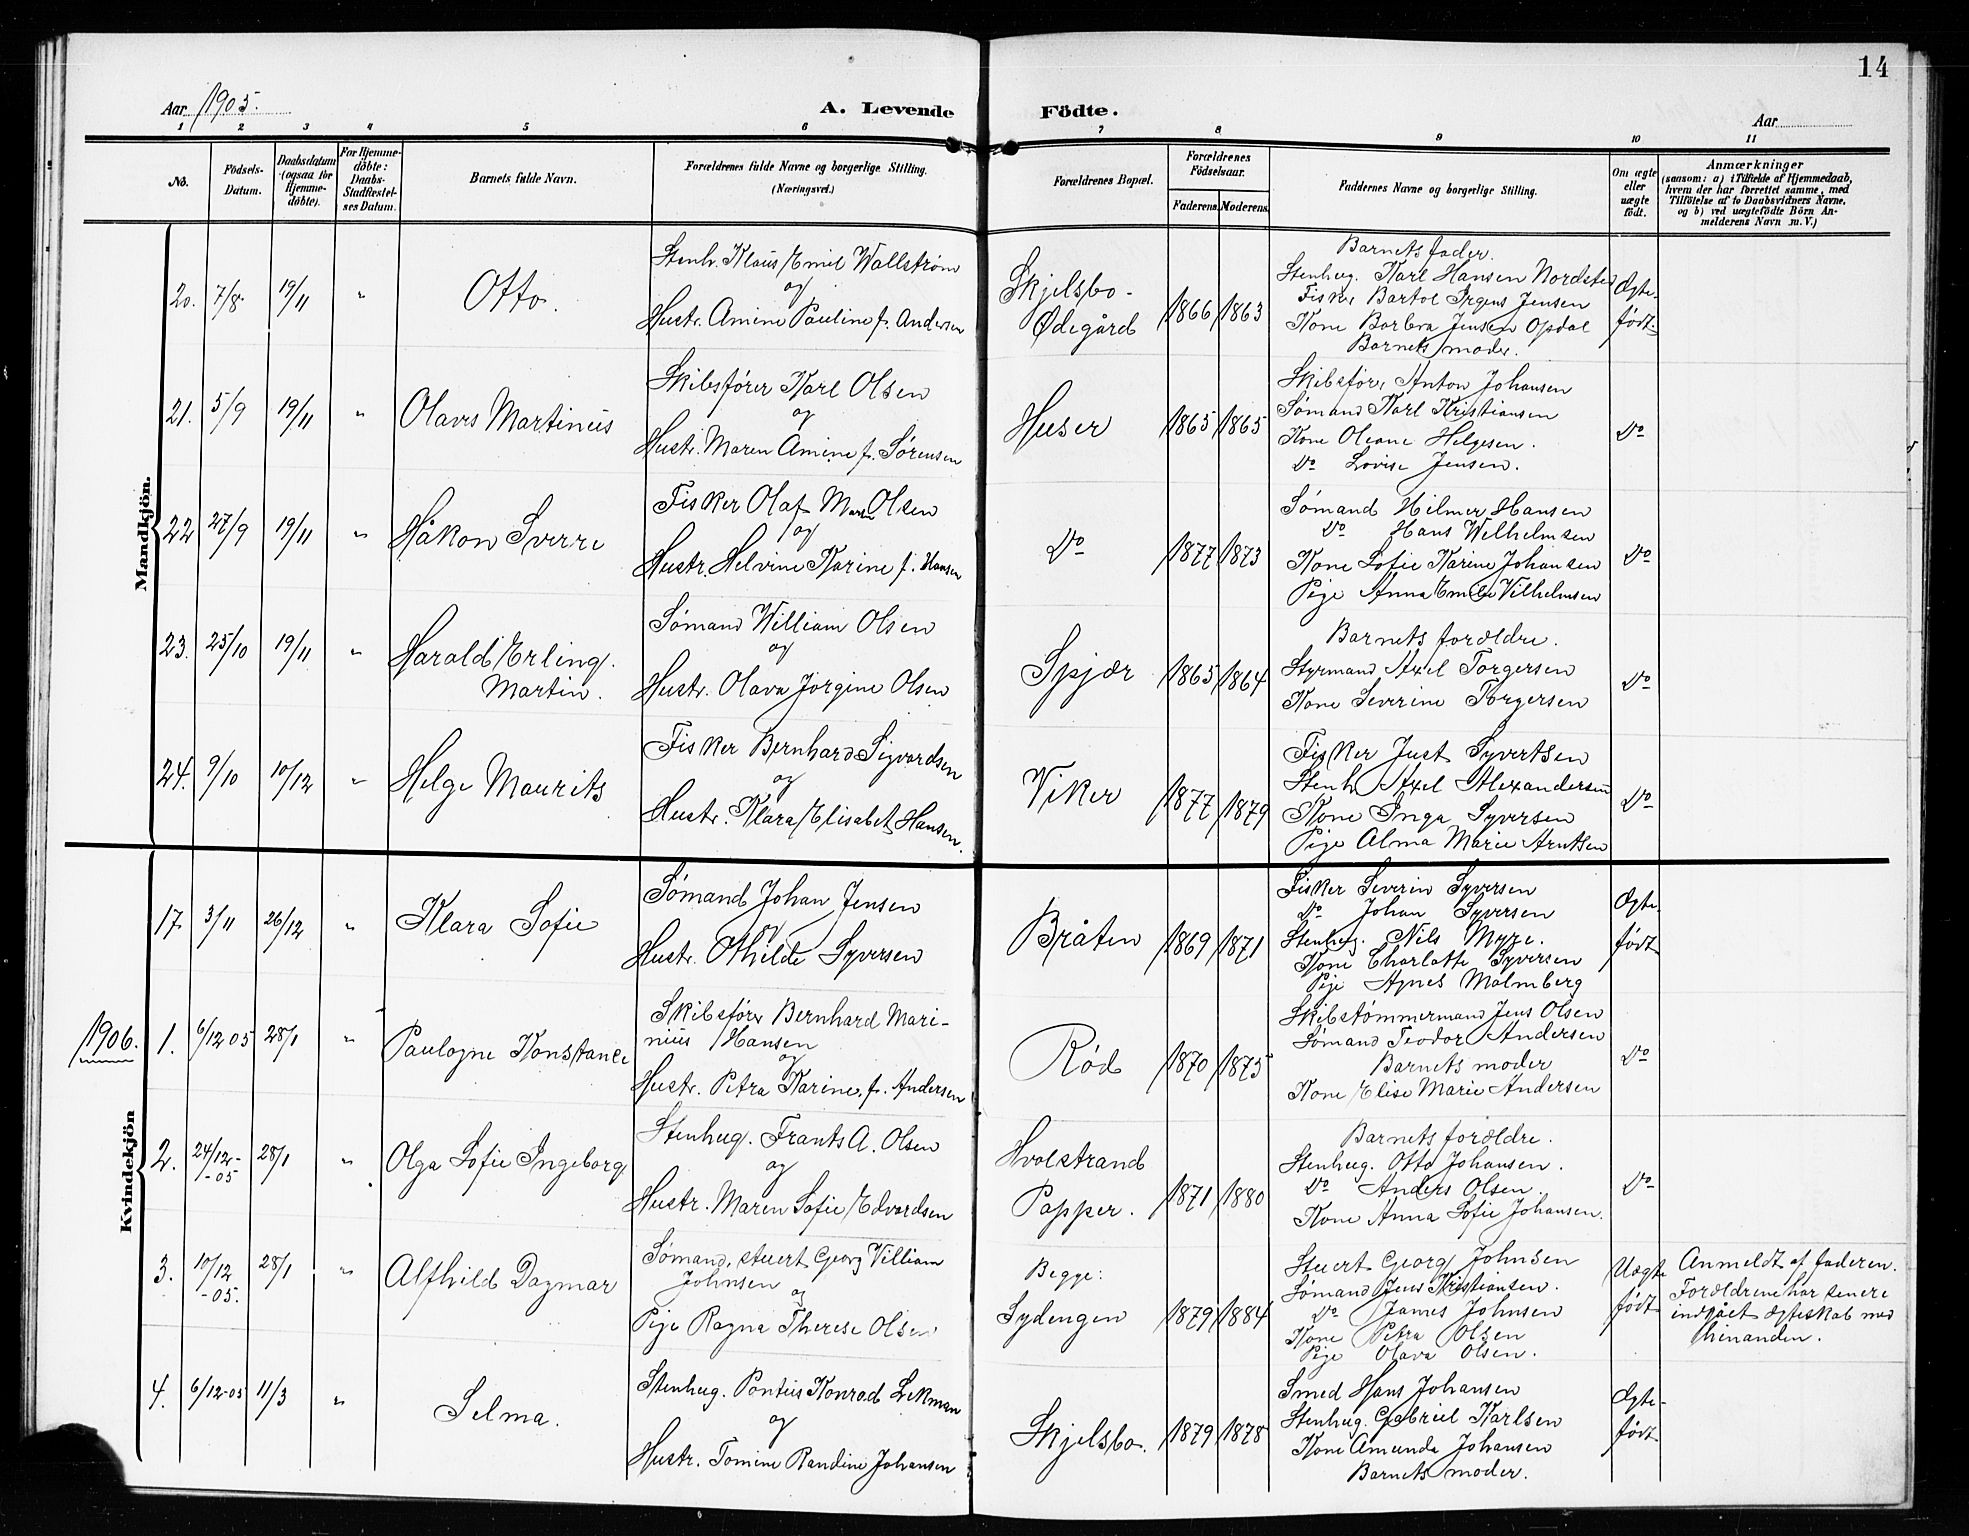 14
Aar 1905.
A. Levende Födte.
Aar
1 2 3 4 5 6 7 8 9 10 11
No.
Födsels-
Datum.
Daabsdatum
(ogsaa for
Hjemme-
döbte).
For Hjemme-
döbte:
Daabs-
Stadfæstel-
ses Datum.
Barnets fulde Navn.
Forældrenes fulde Navne og borgerlige Stilling.
(Næringsvei.)
Forældrenes Bopæl.
Forældrenes
Födselsaar.
Faderens. Moderens.
Faddernes Navne og borgerlige Stilling.
Om ægte
eller
uægte
födt.
Anmærkninger
(saasom: a) i Tilfælde af Hjemmedaab,
hvem der har forrettet samme, med
Tilföielse af to Daabsvidners Navne,
og b) ved uægtefödte Börn An-
melderens Navn m.V.)
Mandkjön.
20. 7/8 19/11 " Otto.
Stenh. Klaus Emil Wallstrøm
og
Hustr. Amine Pauline f. Andersen
Skjelsbo-
Ødegård
1866 1863
Barnets fader.
Stenhug. Karl Hansen Nordsted
Fisker Bartol Irgens Jensen
Kone Barbra Jensen Opdal
Barnets moder.
Ægte-
født.
21. 5/9 19/11 " Olavs Martinius
Skibsfører Karl Olsen
og
Hustr. Maren Amine f. Sørensen
Huser
1865 1865
Skibsfør. Anton Johansen
Sømand Karl Kristiansen
Kone Oleane Helgesen.
Do Lovise Jensen.
Do
22 27/9 19/11 " Håkon Sverre
Fisker Olaf Martin Olsen
og
Hustr. Helvine Karine f. Hansen
Do
1877 1873
Sømand Hilmer Hansen
Do Hans Wilhelmsen
Kone Sofie Karine Johansen
Pige Anna Emilie Vilhelmsen
Do
23. 25/10 19/11 " Harald Erling
Martin.
Sømand William Olsen
og
Hustr. Olava Jørgine Olsen
Spjær
1865 1864
Barnets forældre.
Styrmand Axel Torgersen
Kone Severine Torgersen
Do
24. 9/10 10/12 " Helge Maurits
Fisker Bernhard Sigvardsen
og
Hustr. Klara Elisabet Hansen.
Viker
1877 1879
Fisker Just Syvertsen
Stenh Axel Alexandersen
Kone Inga Syversen
Pige Alma Marie Arntsen
Do
Kvindekjön
17. 3/11 26/12 " Klara Sofie
Sømand Johan Jensen
og
Hustr. Othilde Syversen
Bråten
1869 1871
Fisker Severin Syversen
Do Johan Syversen
Stenhug. Nils Myze.
Kone Charlotte Syversen
Pige Agnes Malmberg
Ægte-
født
1906.
1. 6/12 05 28/1 " Paulogne Konstance
Skibsfører Bernhard Mari-
nius Hansen
og
Hustr. Petra Karine f. Andersen
Rød
1870 1875
Skibstømmermand Jens Olsen
Sømand Teodor Andersen
Barnets moder
Kone Elise Marie Andersen
Do
2. 24/12-
-05 28/1 " Olga Sofie Ingeborg
Stenhug. Frants A. Olsen
og
Hustr. Maren Sofie Edvardsen
Hvalstrand
Papper.
1871 1880
Barnets forældre.
Stenhug. Otto Johansen.
Do Anders Olsen.
Kone Anna Sofie Johansen.
Do
3. 10/12
-05. 28/1 " Alfhild Dagmar
Sømand, stuert Georg Villiam
Johnsen
og
Pige Ragna Therese Olsen
Begge:
Sydengen
1879 1884
Stuert Georg Johnsen
Sømand Jens Kristiansen.
Do James Johnsen
Kone Petra Olsen
Pige Olava Olsen.
Uægte
født
Anmeldt af faderen.
Forældrene har senere
indgået ægteskab med
hinanden.
4. 6/12-05 11/3 " Selma.
Stenhug. Pontus Konrad Lekman
og
Hustr. Tomine Randine Johansen
Skjelsbo.
1879 1878
Smed Hans Johansen
Stenhug. Gabriel Karlsen
Kone Amunda Johansen
Barnets moder.
Ægte-
født